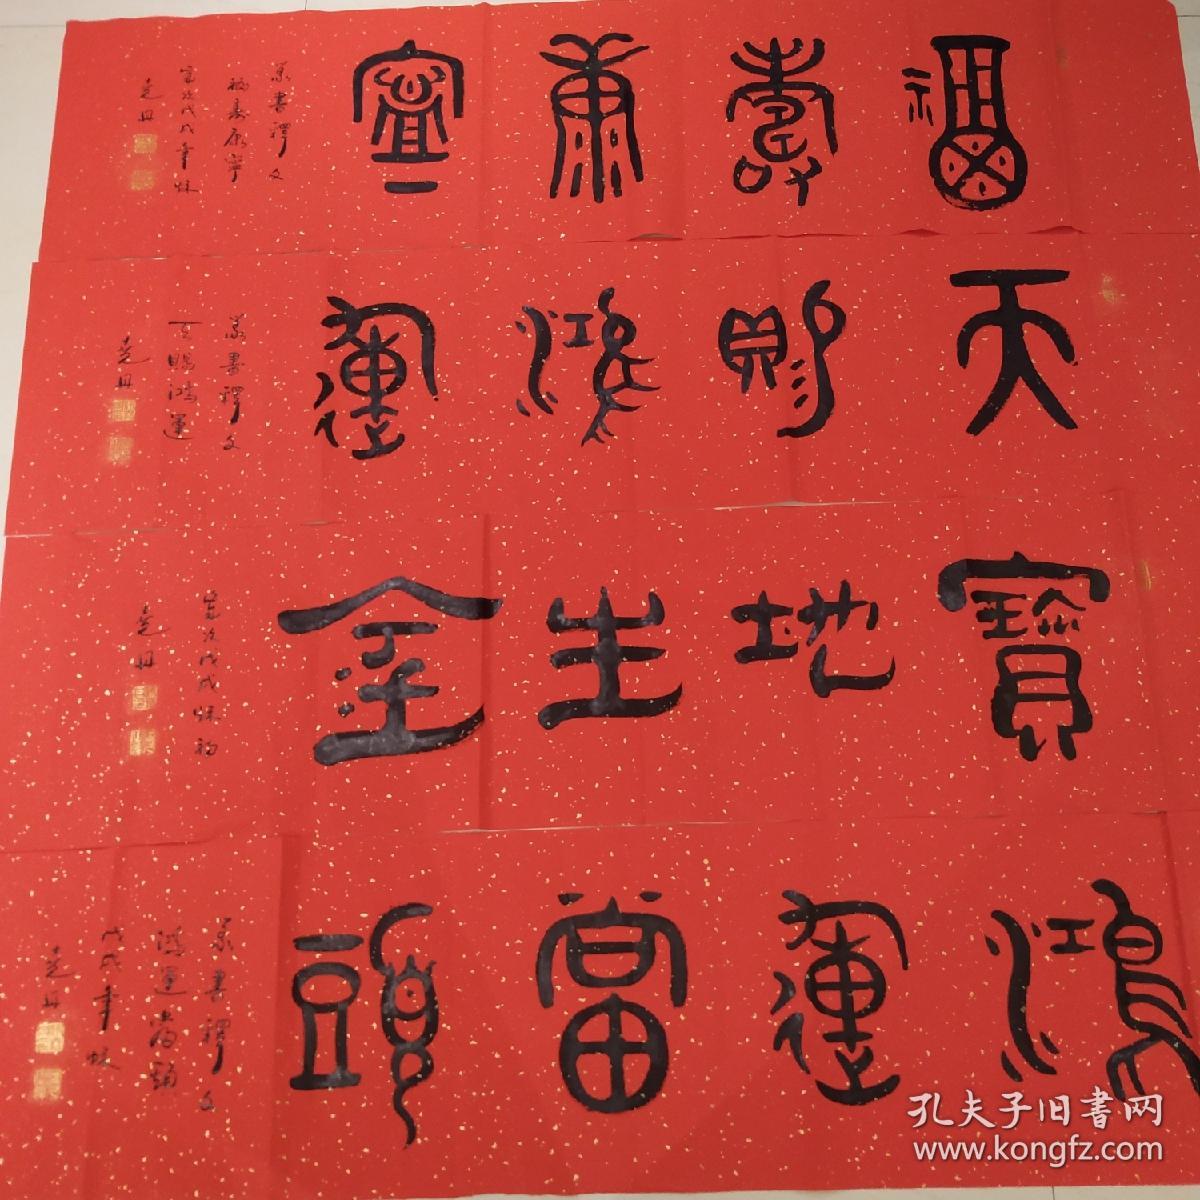 福壽康寧
篆書釋文
福寿康寧
歲次戊戌年秋
堯丹
天賜鴻運
篆書釋文
天賜鴻運
堯丹
寶地生金
歲次戊戌秋初
堯丹
鴻運當頭
篆書釋文
鴻運當頭
戊戌年秋
堯丹
孔夫子旧書网
www.kongfz.com